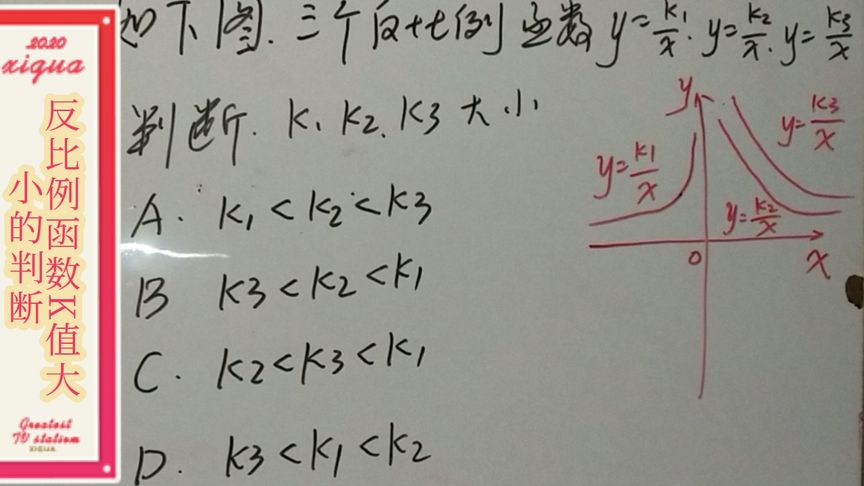 2020
xigua
反比例函数K值大
小的判断
Greatest
TV station
XIGUA
如下图.三个反比例函数 y=k₁/x. y=k₂/x. y=k₃/x
判断. k₁ k₂. k₃ 大小
A. k₁<k₂<k₃
B k₃<k₂<k₁
C. k₂<k₃<k₁
D. k₃<k₁<k₂
y
y=k₃/x
y=k₁/x
y=k₂/x
0
x